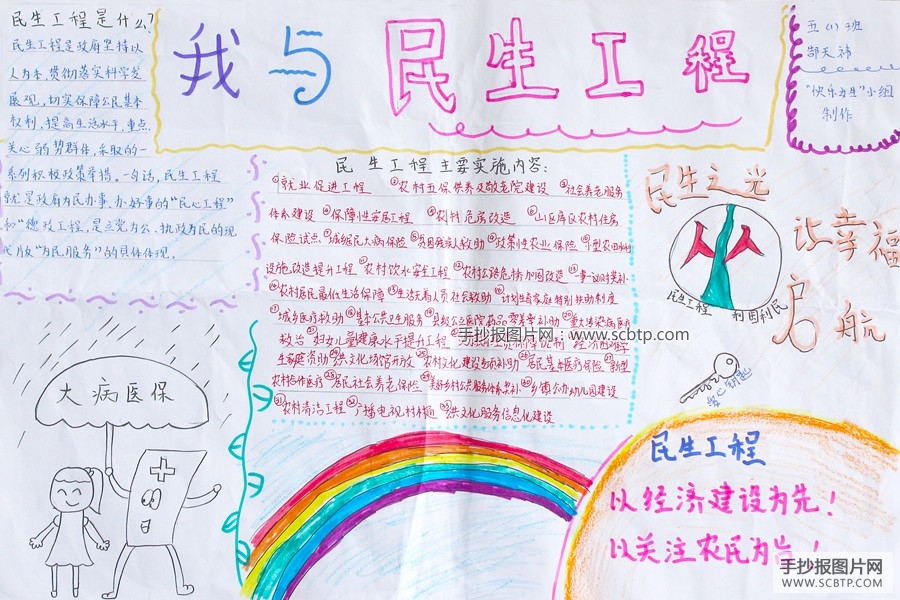 民生工程是什么?
民生工程是政府坚持以
人为本,贯彻落实科学发
展观,切实保障公民基本
权利,提高生活水平,重点
关心弱势群体,采取的一
系列积极政策举措。一句话,民生工程
就是政府为民办事、办好事的"民心工程"
和"德政工程,是立党为公、执政为民的现
"为民服务"的具体体现。
我与民生工程
五(1)班
天
"快乐 生"小组
制作
民生工程主要实施内容:
①就业促进工程 ②农村五保供养及敬老院建设 ③社会养老服务
体系建设 ④保障性安居工程 ⑤农村危房改造 ⑥山区库区农村住房
保险试点 ⑦城镇居民大病保险 ⑧贫困残疾人救助 ⑨政策性农业保险 ⑩小型农田水利
设施改造提升工程 ⑪农村饮水安全工程 ⑫农村公路危桥加固改造 ⑬一事一议财政奖补
⑭农村居民最低生活保障 ⑮生活无着人员社会救助 ⑯计划生育家庭特别扶助制度
⑰城乡医疗救助 ⑱基本公共卫生服务 ⑲县级公立医院药品零差率补助 ⑳重大传染病医疗
救治 ㉑妇女儿童健康水平提升工程 经济困难学
生家庭资助 公共文化场馆开放 ㉕农村文化建设专项补助 ㉖居民基本医疗保险 ㉗新型
农村合作医疗 ㉘居民社会养老保险 ㉙美好乡村公共服务体系奖补 ㉚乡镇公办幼儿园建设
㉛农村清洁工程 ㉜广播电视村村通 ㉝公共文化服务信息化建设
手抄报图片网:www.scbtp.com
民生之光
民生工程 利国利民
让幸福
启航
爱心钥匙
大病医保
民生工程
以经济建设为先!
以关注农民为旨!
手抄报图片网
WWW.SCBTP.COM